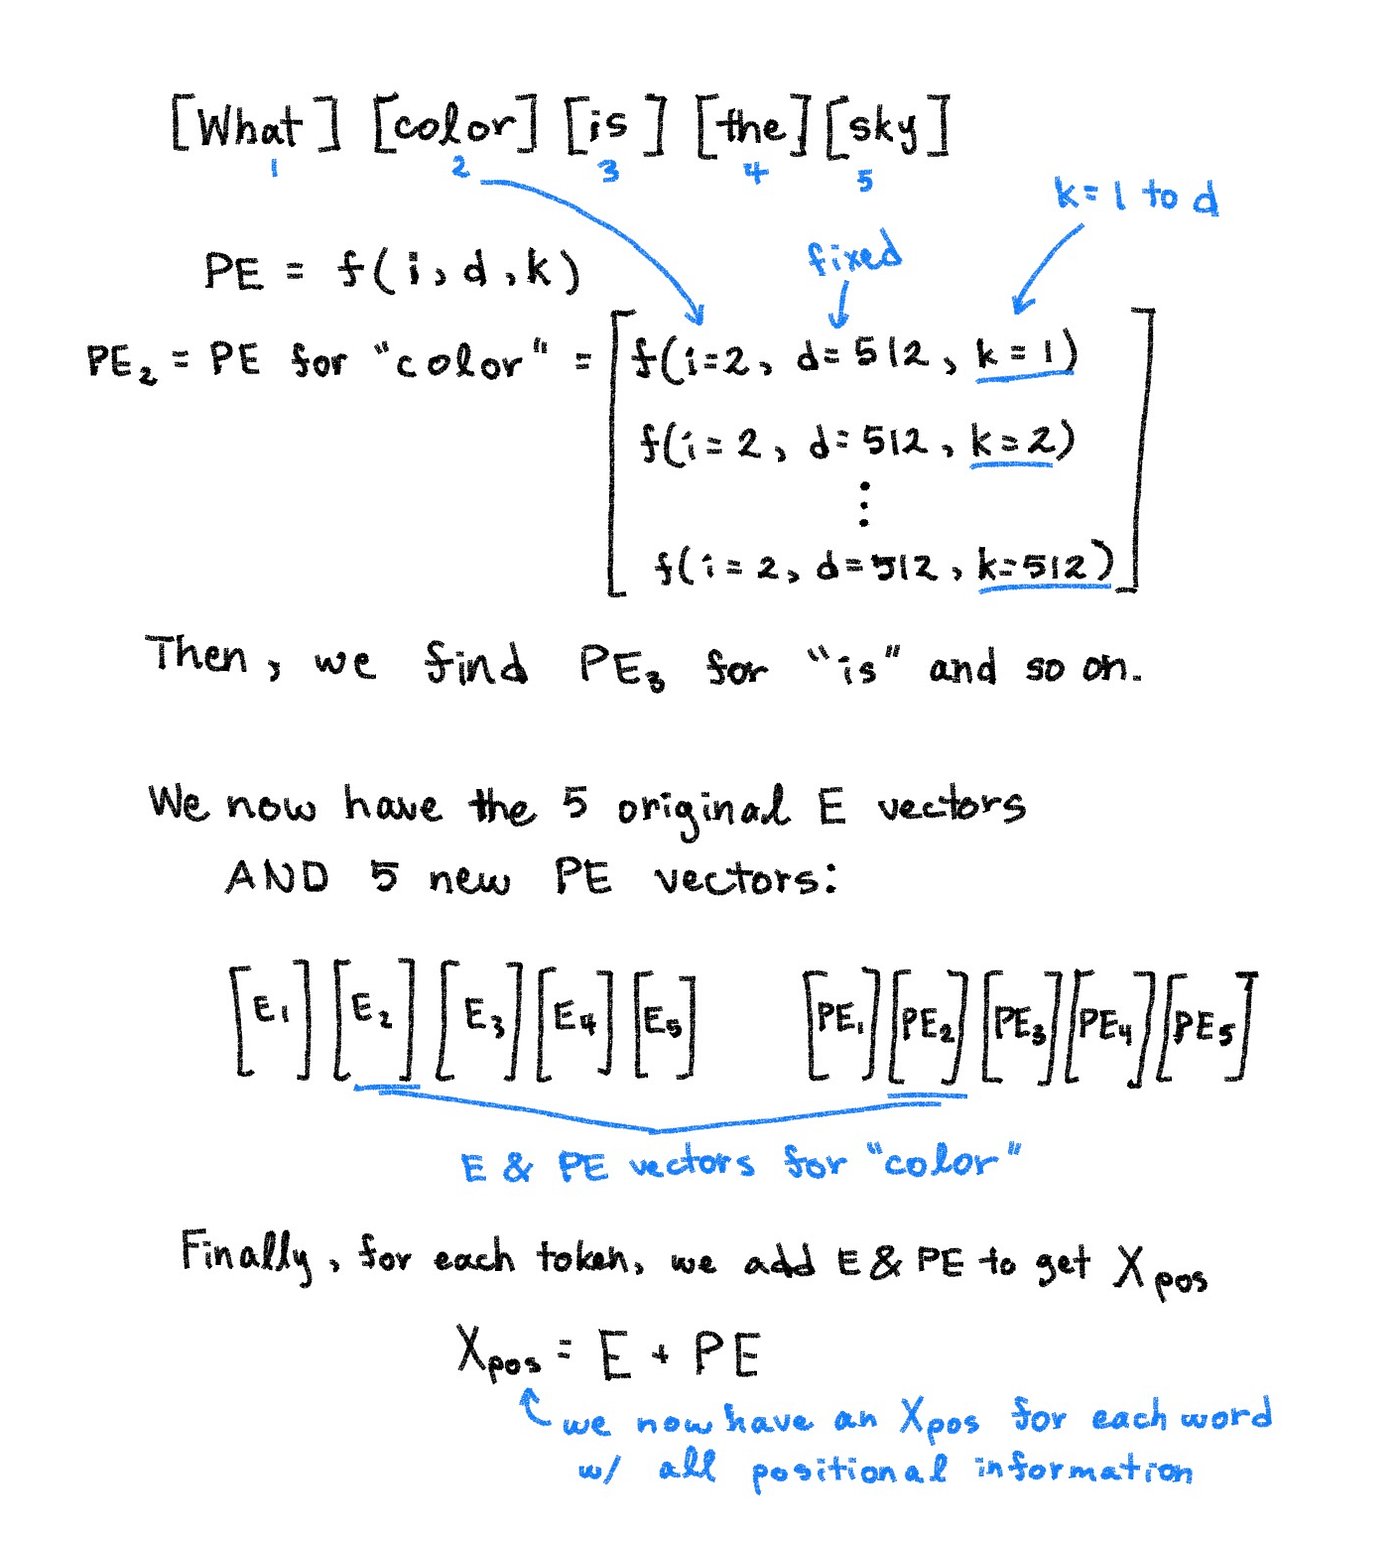 [What] [color] [is] [the] [sky]
1 2 3 4 5
k=1 to d
fixed
PE = f(i, d, k)
PE₂ = PE for "color" = [f(i=2, d=512, k=1)
f(i=2, d=512, k=2)
⋮
f(i=2, d=512, k=512)]
Then, we find PE₃ for "is" and so on.
We now have the 5 original E vectors
AND 5 new PE vectors:
[E₁] [E₂] [E₃] [E₄] [E₅] [PE₁] [PE₂] [PE₃] [PE₄] [PE₅]
E & PE vectors for "color"
Finally, for each token, we add E & PE to get Xpos
Xpos = E + PE
we now have an Xpos for each word
w/ all positional information